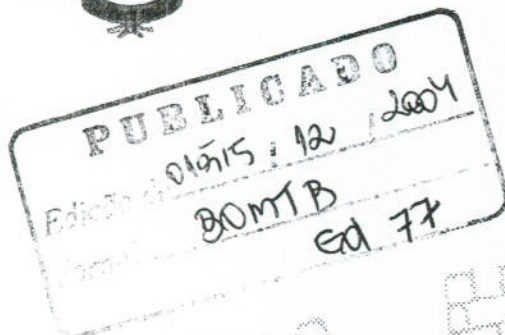 PUBLICADO
Edição de 01a15 / 12 / 2004
Jornal BOMTB
Ed 77